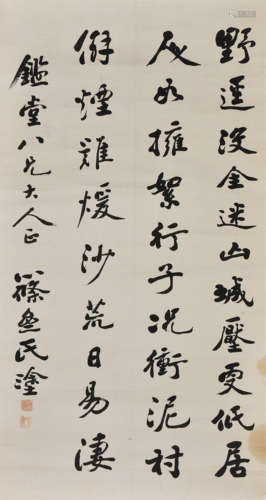 野逕没全迷山城壓更低居
民如擁絮行子況衝泥村
僻煙難煖沙荒日易淒
鑑堂八兄大人正 篠氏塗